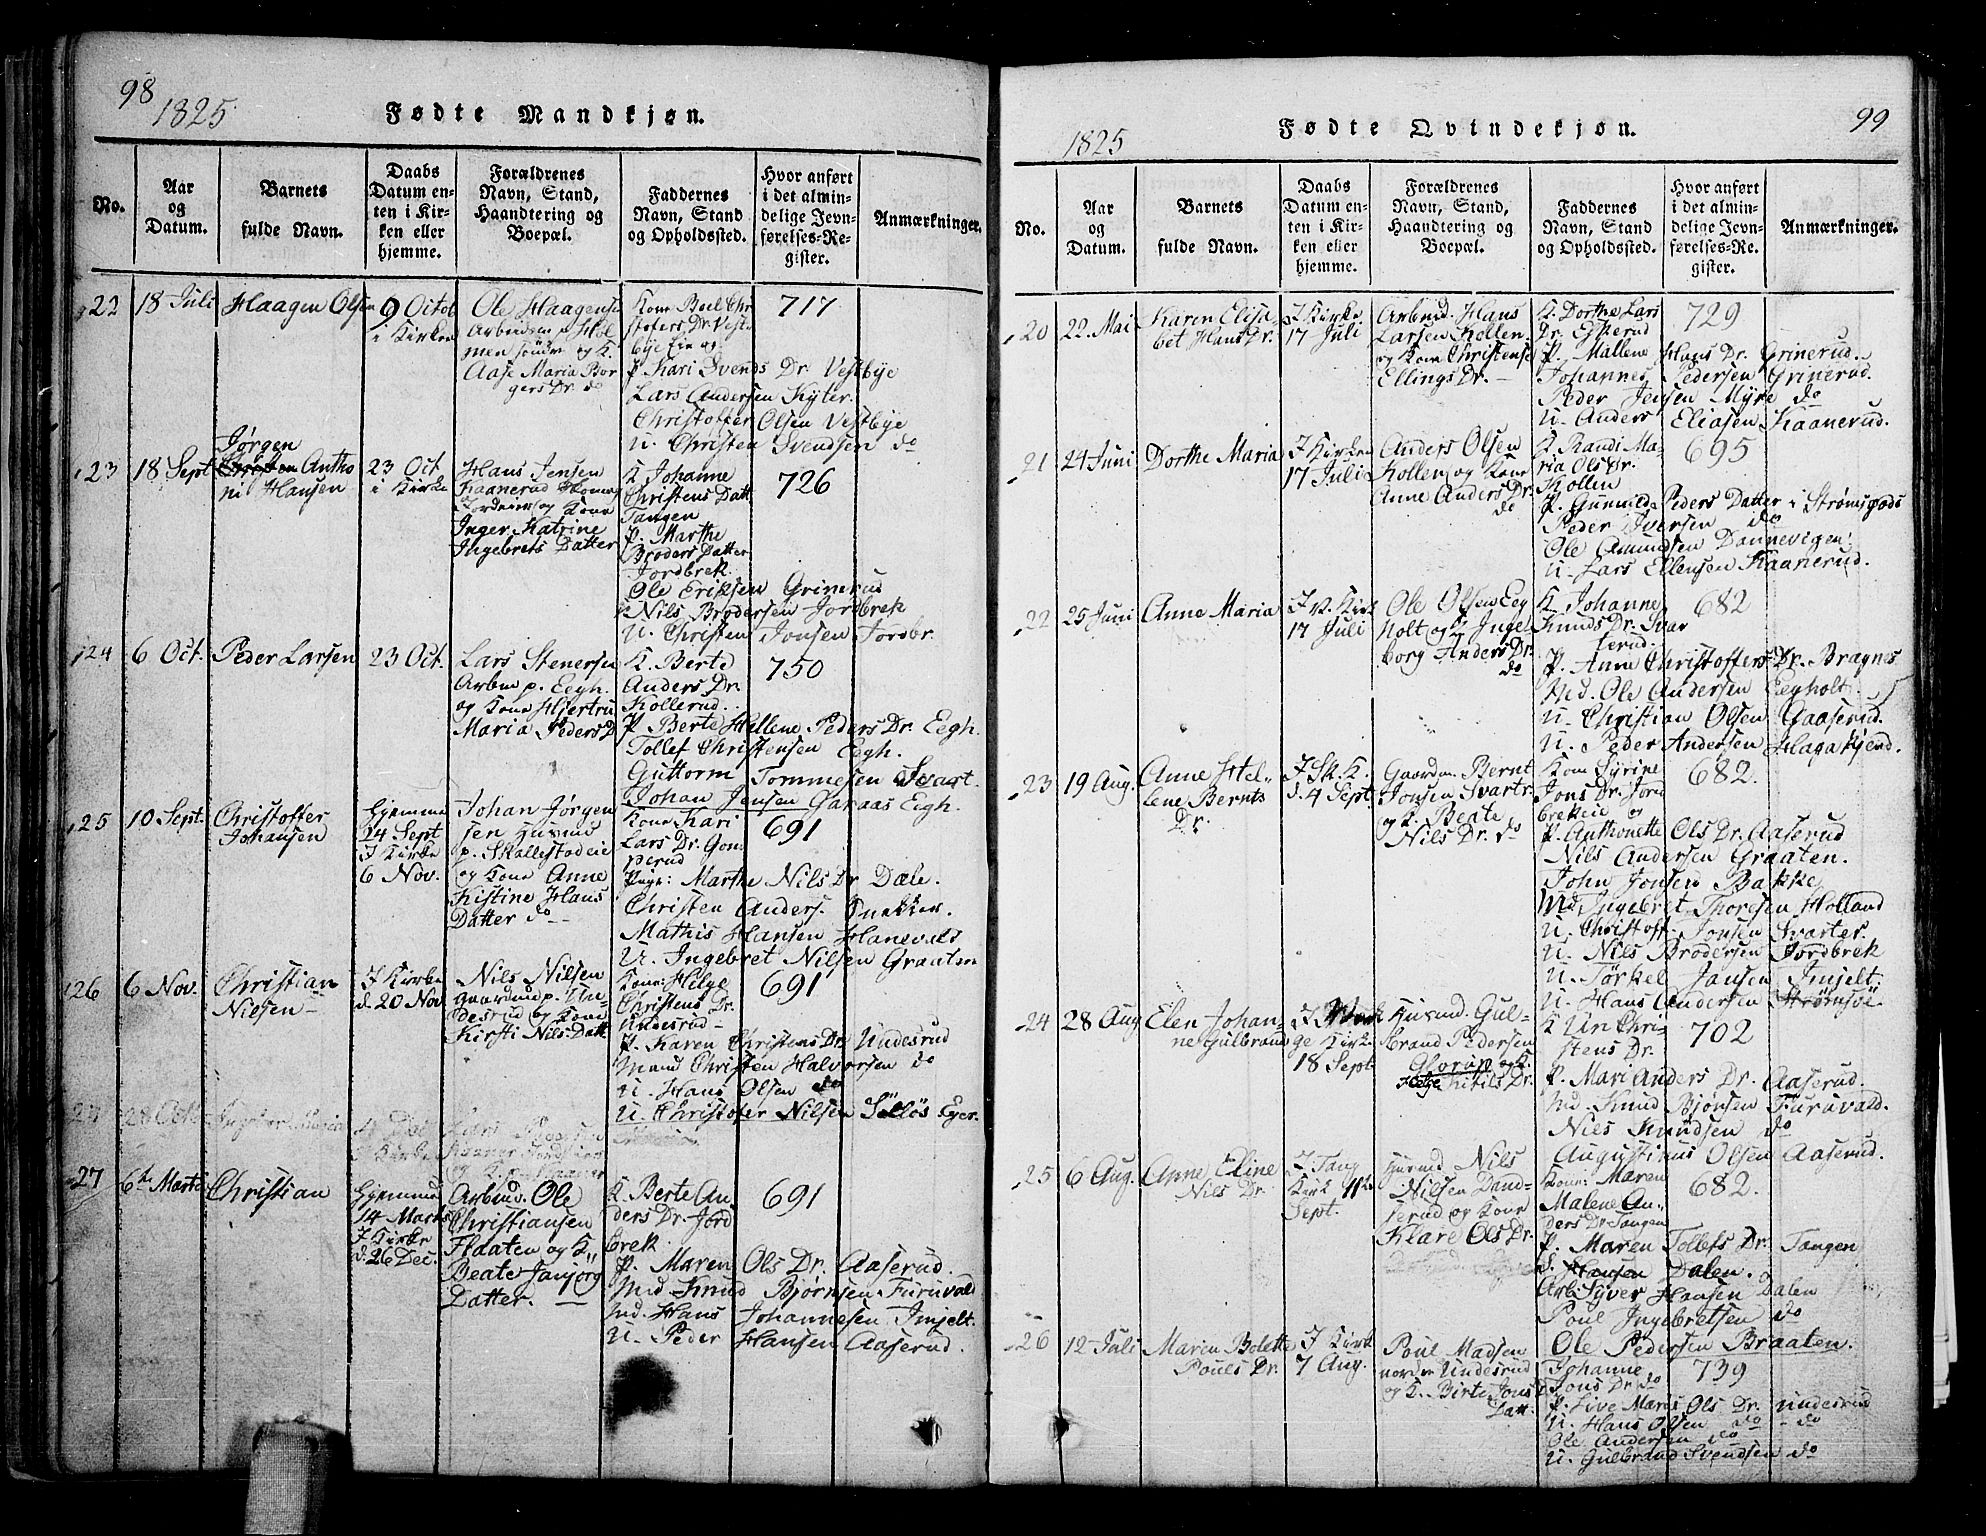 98
1825
Fødte Mandkjøn.
No.
Aar
og
Datum.
Barnets
fulde Navn.
Daabs
Datum en-
ten i Kir-
ken eller
hjemme.
Forældrenes
Navn, Stand,
Haandtering og
Boepæl.
Faddernes
Navn, Stand
og Opholdssted.
Hvor anført
i det almin-
delige Jevn-
førelses-Re-
gister.
Anmærkninger.
22
18 Juli
Haagen Olsen
9 Octob
i Kirken
Ole Haagens
Arbeidsm p Hol
men søndr og K.
Aase Maria Bor
gers Dr. do
Kone Boel Chr
stofers Dr. Vest
bye Eie og
P. Kari Svends Dr. Vestbye
Lars Andersen Kyter.
Christoffer Olsen Vestbye
U. Christen Svendsen do
717
23
18 Sept
Jørgen
Antho
ni Hansen
23 Oct
i Kirke
Hans Jensen
Kaanerud
og Kone
Inger Katrine
Ingebrets Datter
K Johanne
Christens Datt
Tangen
P. Marthe
Broders Datter
Jordbrek.
Ole Eriksen Grinerud
Nils Brodersen Jordbrek
U. Christen Jonsen Jordbr.
726
24
6 Oct.
Peder Larsen
23 Oct.
Lars Stenersen
Arbm p. Eegh.
og Kone Hjertru
Maria Peders D
K. Berte
Anders Dr.
Kollerud.
P. Berte Hellene Peders Dr. Eegh.
Tollef Christensen Eegh.
Guttorm Tommesen Svart
Johan Jensen Garaas Eegh.
750
25
10 Sept.
Christoffer
Johansen
Hjemme
24 Sept
I Kirke
6 Nov.
Johan Jørgen
sen Husmd
p. Skallestadeie
og Kone Anne
Kistine Hans
Datter do
Kone Kari
Lars Dr. Gom
perud
Pige: Marthe Nils Dr Dæle.
Christen Anders. Snekker.
Mathis Hansen Hanevald
U. Ingebret Nilsen Graaten
691
26
6 Nov.
Christian
Nielsen
I Kirke
d. 20 Nov
Nils Nilsen
Gaardmd p. Un-
desrud og Kone
Kirsti Nils Datt
Kone: Helge
Christens Dr.
Undesrud
P. Karen Christens Dr. Undesrud
Mand Christen Halvorsen do
U. Hans Olsen do
U. Christofer Nilsen Sølløs Eger.
691
27
28 Octo
27
6te Marts
Christian
Hjemme
14 Marts
I Kirke
d. 26 Dec.
Arbmd. Ole
Christiansen
Flaaten og K.,
Beate Janjørg
Datter.
K. Berte An
ders Dr. Jord
brek.
P. Maren Ols Dr. Aaserud.
Md Knud Bjørnsen Furuvald
Md. Hans Johannesen Imjelt.
U. Peder Hansen Aaserud.
691
99
1825
Fødte Qvindekjøn.
No.
Aar
og
Datum.
Barnets
fulde Navn.
Daabs
Datum en-
ten i Kir-
ken eller
hjemme.
Forældrenes
Navn, Stand,
Haandtering og
Boepæl.
Faddernes
Navn, Stand
og Opholdssted.
Hvor anført
i det almin-
delige Jevn-
førelses-Re-
gister.
Anmærkninger.
20
22 Mai
Karen Elisa
bet Hans Dr.
I Kirke
17 Juli
Arbmd. Hans
Larsen Kollen.
og Kone Christense
Ellings Dr.
K. Dorthe Lars
Dr. Eskerud
P. Mallene Hans Dr. Grinerud.
Johannes Pedersen Grinerud.
Peder Jensen Myre do
U. Anders Eliasen Kaanerud.
729
21
24 Juni
Dorthe Maria
I Kirken
17 Juli
Anders Olsen
Kollen og Kone
Anne Anders Dr.
do
K. Randi Ma-
ria Ols Dr.
Kollen
P. Gunnild Peders Datter i Strømsgods
Peder Iversen do
Ole Amundsen Dannevigen.
U. Lars Ellensen Kaanerud.
695
22
25 Juni
Anne Maria
I V. Kirk
17 Juli
Ole Olsen Eeg
holt og K. Inge
borg Anders Dr.
do
K. Johanne
Knuds Dr. Svar
terud.
P. Anne Christoffers Dr. Bragnes
Md. Ole Andersen Eegholt.
U. Christian Olsen Gaaserud.
U. Peder Andersen Hagakjend.
682
23
19 Aug.
Anne Hel-
lene Bernts
Dr.
I Sk. K.
d. 4 Sept.
Gaardm. Bernt
Jonsen Svartr
og K. Beate
Nils Dr. do
Kone Syrine
Jons Dr. Jord
brekeie og
P. Anthonette Ols Dr. Aaserud
Nils Andersen Graaten.
John Jonsen Bakke
Md. Ingebret Thoresen Holland
U. Christoff. Jonsen Svarter.
U. Nils Brodersen Jordbrek
U. Tørkel Jansen Imjelt;
U. Hans Andersen Strømsøe
682.
24
28 Aug
Elen Johan-
ne Gulbrand
ge Kirke
18 Sept.
Husmd. Gul-
brand Pedersen
Glorup og K.
Helge Kitils Dr.
K Uri Chri-
stens Dr.
P. Mari Anders Dr. Aaserud.
Md. Knud Bjønsen Furuvald.
Niels Knudsen do
Augustinus Olsen Aaserud.
702
25
6 Aug.
Anne Eline
Nils Dr.
I Tang
Kirk 11te
Sept.
Husmd Nils
Nilsen Dand-
serud og Kone
Klare Ols Dr.
Kone: Maren
Malene An-
ders Dr. Tangen
P. Maren Tollefs Dr. Tangen
Hansen Dalen.
Arb. Syver Hansen Dalen
Poul Ingebretsen do
Ole Pedersen Braaten.
682.
26
12 Juli
Maren Bolette
Poules Dr.
I Kirk
7 Aug.
Poul Madsen
nordre Undesrud
og K. Birte Jons
Datt.
Johanne
Jons Dr. do
P. Live Maria Ols Dr. Undesrud
U. Hans Olsen do do
Ole Andersen do
U. Gulbrand Svendsen do
739